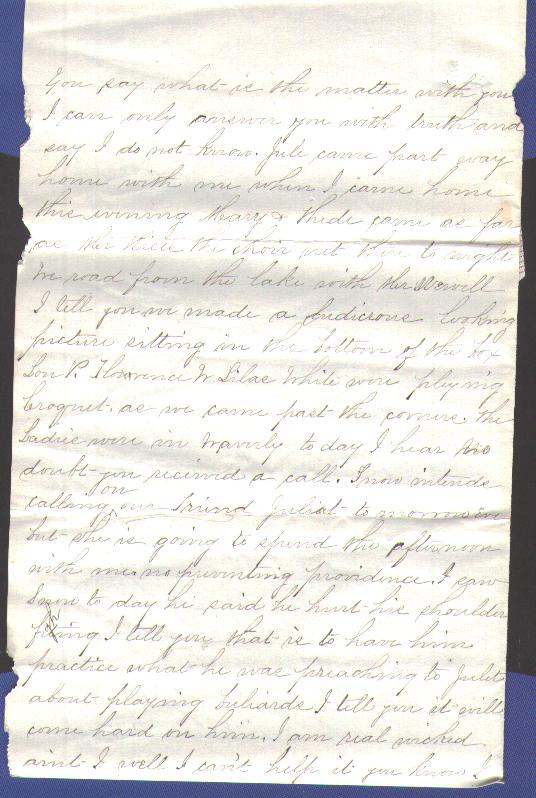 You say what is the matter with you
I can only answer you with truth and
say I do not know. Jule came part way
home with me when I came home
this evening Mary & Thede came as far
as the choir met there to night
We road from the lake with
I tell you we made a ludicrous looking
picture sitting in the bottom of the box
Lou P. Florence W Silas White were playing
Croquet. as we came past the corners. the
Ladies were in Waverly to day I hear no
doubt you received a call. Snow intends
calling on our friend Juliet to morrow
but she is going to spend the afternoon
with me. no preventing providence. I saw
Snow to day he said he hurt his shoulder
I tell you that is to have him
practice what he was preaching to Juliet
about playing biliards I tell you it will
come hard on him. I am real wicked
aint I well I can't help it you know I